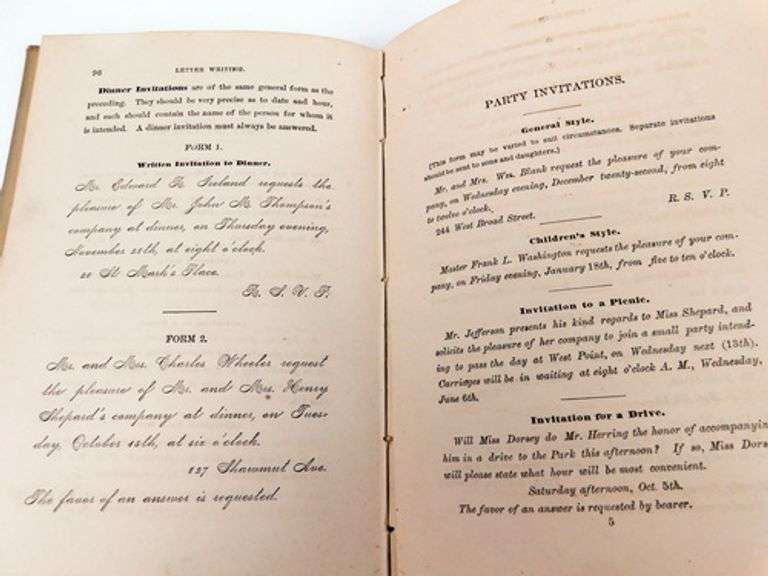 96
LETTER WRITING.
Dinner Invitations are of the same general form as the
preceding. They should be very precise as to date and hour,
and each should contain the name of the person for whom it
is intended. A dinner invitation must always be answered.
FORM 1.
Written Invitation to Dinner.
Mr. Edward R. Ireland requests the
pleasure of Mr. John M. Thompson's
company at dinner, on Thursday evening,
November at eight o'clock.
St. Mark's Place.
R. S. V. P.
FORM 2.
Mr. and Mrs. Charles Wheeler request
the pleasure of Mr. and Mrs. Henry
Shepard's company at dinner, on Tues-
day, October 15th, at six o'clock.
127 Shawmut Ave.
The favor of an answer is requested.
PARTY INVITATIONS.
General Style.
(This form may be varied to suit circumstances. Separate invitations
should be sent to sons and daughters.)
Mr. and Mrs. Wm. Blank request the pleasure of your com-
pany, on Wednesday evening, December twenty-second, from eight
to twelve o'clock.
R. S. V. P.
244 West Broad Street.
Children's Style.
Master Frank L. Washington requests the pleasure of your com-
pany, on Friday evening, January 18th, from five to ten o'clock.
Invitation to a Picnic.
Mr. Jefferson presents his kind regards to Miss Shepard, and
solicits the pleasure of her company to join a small party intend-
ing to pass the day at West Point, on Wednesday next (13th).
Carriages will be in waiting at eight o'clock A. M., Wednesday,
June 6th.
Invitation for a Drive.
Will Miss Dorsey do Mr. Herring the honor of accompanyin
him in a drive to the Park this afternoon? If so, Miss Dors
will please state what hour will be most convenient.
Saturday afternoon, Oct. 5th.
The favor of an answer is requested by bearer.
5